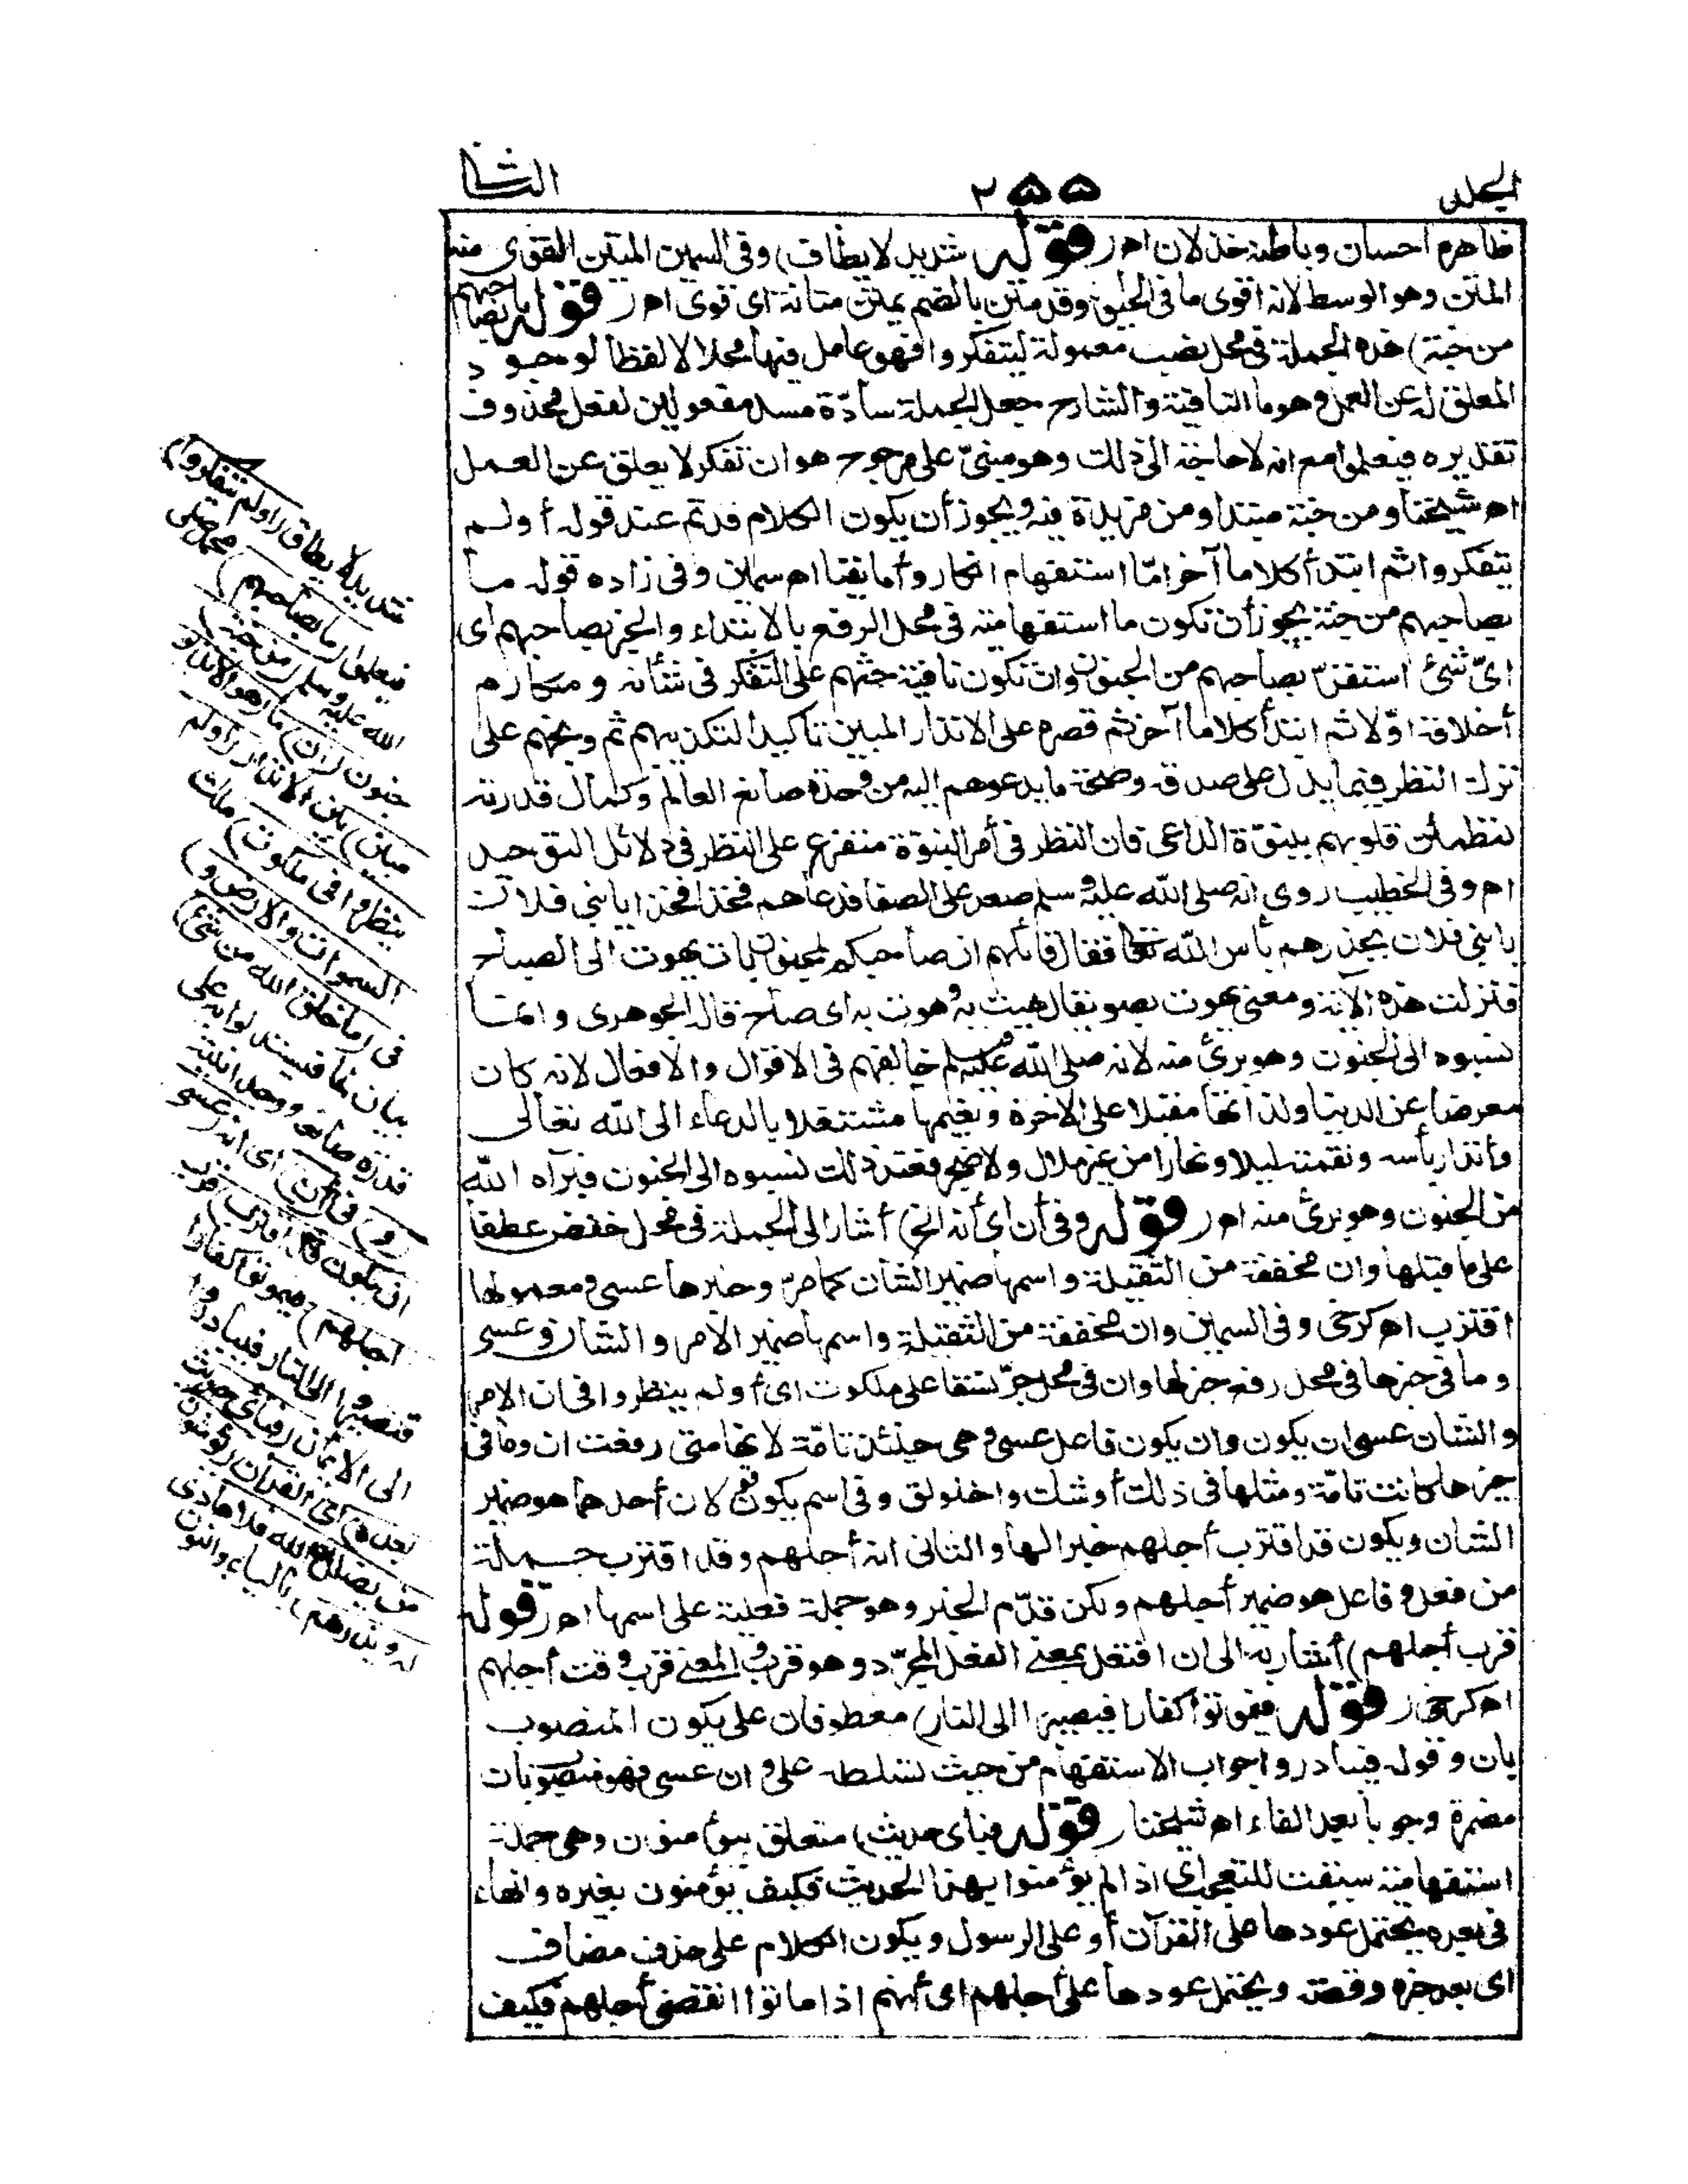 الجلد ٢٥٥ الثانى
ظاهره احسان وباطنه خذلان اهـ (قوله شديد لا يطاق) وفى السمين المتين القوى منه
المتن وهو الوسط لانه أقوى ما فى الحيوان وقد متن بالضم يمتن متانة اى قوى اهـ (قوله ما بصاحبهم
من جنة) هذه الجملة فى محل نصب معمولة ليتفكروا فهو عامل فيها محلا لا لفظا لوجود
المعلق له عن العمل وهو ما النافية والشارح جعل الجملة سادّة مسد مفعولين لفعل محذوف
تقديره فيعلموا مع انه لا حاجة الى ذلك وهو مبنىّ على مرجوح هو ان تفكر لا يعلق عن العمل
اهـ شيخنا ومن جنة مبتدأ ومن مزيدة فيه ويجوز أن يكون الكلام قد تم عند قوله أولم
يتفكروا ثم ابتدأ كلاما آخر امّا استفهام انكار وأما نفيا اهـ سمين وفى زاده قوله ما
بصاحبهم من جنة يجوز أن تكون ما استفهامية فى محل الرفع بالابتداء والخبر بصاحبهم اى
اىّ شئ استقرّ بصاحبهم من الجنون وان تكون نافية حثهم على التفكر فى شأنه ومكارم
أخلاقه اوّلا ثم ابتدأ كلاما آخر ثم قصره على الانذار المبين تاكيدا لتكذيبهم ثم وبخهم على
ترك النظر فيما يدل على صدقه وصحة ما يدعوهم اليه من وحدة صانع العالم وكمال قدرته
لتطمئن قلوبهم بنبوّة الداعى فان النظر فى أمر النبوّة متفرع على النظر فى دلائل التوحيد
اهـ وفى الخطيب روى انه صلى الله عليه وسلم صعد على الصفا فدعاهم فخذا فخذا يا بنى فلان
يا بنى فلان يحذرهم بأس الله تعالى فقال قائلهم ان صاحبكم لمجنون بات يهوت الى الصباح
فنزلت هذه الآية ومعنى يهوت يصوت يقال هيت به وهوت به اى صاح قاله الجوهرى وانما
نسبوه الى الجنون وهو برئ منه لانه صلى الله عليه وسلم خالفهم فى الاقوال والافعال لانه كان
معرضا عن الدنيا ولذاتها مقبلا على الآخرة ونعيمها مشتغلا بالدعاء الى الله تعالى
وانذار بأسه ونقمته ليلا ونهارا من غير ملال ولا ضجر فعند ذلك نسبوه الى الجنون فبرّأه الله
من الجنون وهو برئ منه اهـ (قوله وفى أن اى أنه الخ) أشار الى الجملة فى محل خفض عطفا
على ما قبلها وان مخففة من الثقيلة واسمها ضمير الشان كما مرّ وخبرها عسى ومعمولها
اقترب اهـ كرخى وفى السمين وان مخففة من الثقيلة واسمها ضمير الامر والشان وعسى
وما فى حيزها فى محل رفع خبر لها وان فى محل جرّ نسقا على ملكوت اى أولم ينظروا فى ان الامر
والشان عسى ان يكون وان يكون فاعل عسى وهى حينئذ تامّة لانها متى رفعت ان وما فى
حيزها كانت تامّة ومثلها فى ذلك أوشك واخلولق وفى اسم يكون قولان أحدهما هو ضمير
الشان ويكون قد اقترب أجلهم خبرا لها والثانى انه أجلهم وقد اقترب جملة
من فعل وفاعل هو ضمير أجلهم ولكن قدّم الخبر وهو جملة فعلية على اسمها اهـ (قوله
قرب أجلهم) أشار به الى ان افتعل بمعنى الفعل المجرّد وهو قرب والمعنى قرب وقت أجلهم
اهـ كرخى (قوله فيموتوا كفارا فيصيروا الى النار) معطوفان على يكون المنصوب
بان وقوله فيبادروا جواب الاستفهام من حيث تسلطه على وان عسى فهو منصوب بان
مضمرة وجوبا بعد الفاء اهـ شيخنا (قوله فباى حديث) متعلق بيؤمنون وهى جملة
استفهامية سيقت للتعجب اى اذا لم يؤمنوا بهذا الحديث فكيف يؤمنون بغيره والهاء
فى بعده يحتمل عودها على القرآن أو على الرسول ويكون الكلام على حذف مضاف
اى بعد خبره وقصته ويحتمل عودها على أجلهم اى أنهم اذا ماتوا انقضى أجلهم فكيف
شديد لا يطاق (أولم يتفكروا)
فيعلموا (ما بصاحبهم) محمد صلى
الله عليه وسلم (من جنة)
جنون (ان) ما (هو الا نذير
مبين) بين الانذار (أولم
ينظروا فى ملكوت) ملك
السموات والارض و)
فى (ما خلق الله من شئ)
بيان لما فيستدلوا به على
قدرة صانعه ووحدانيته
(و) فى (أن) اى انه (عسى
ان يكون قد اقترب) قرب
(أجلهم) فيموتوا كفارا
فيصيروا الى النار فيبادروا
الى الايمان (فباى حديث
بعده) اى القرآن (يؤمنون
من يضلل الله فلا هادى
له ويذرهم) بالياء والنون